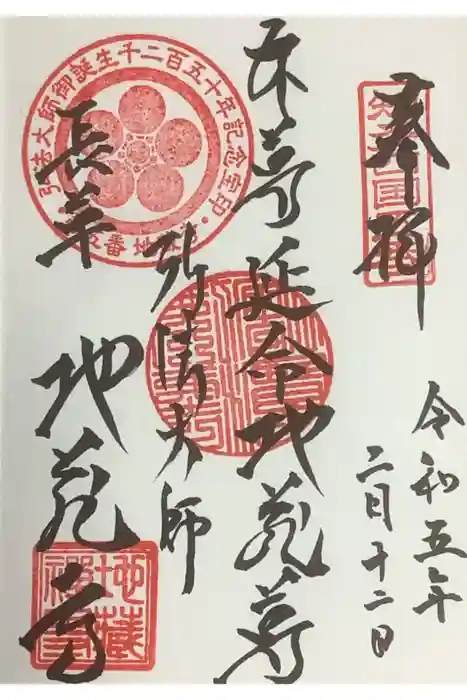 奉拝
令和五年
二月十二日
本尊延命地蔵尊
弘法大師
長草
地蔵寺
弘法大師御誕生千二百五十年記念宝印
地蔵禅寺